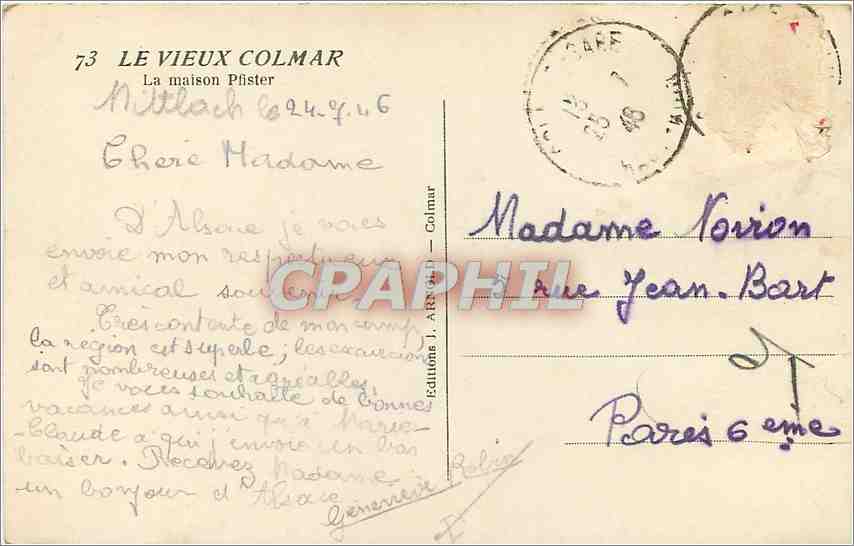 73 LE VIEUX COLMAR
La maison Pfister
Mittlach le 24-7-46
Chère Madame
D'Alsace je vous
envoie mon respectueux
et amical souvenir
Très contente de mon camp,
la région est superbe; les excursions
sont nombreuses et agréables.
Je vous souhaite de bonnes
vacances ainsi qu'à Marie-
-Claude à qui j'envoie un bon
baiser. Recevez Madame
un bonjour d'Alsace
Geneviève Robin
Editions J. ARNOLD — Colmar
CPAPHIL
GARE
25
7
46
Madame Noiron
rue Jean-Bart
Paris 6eme